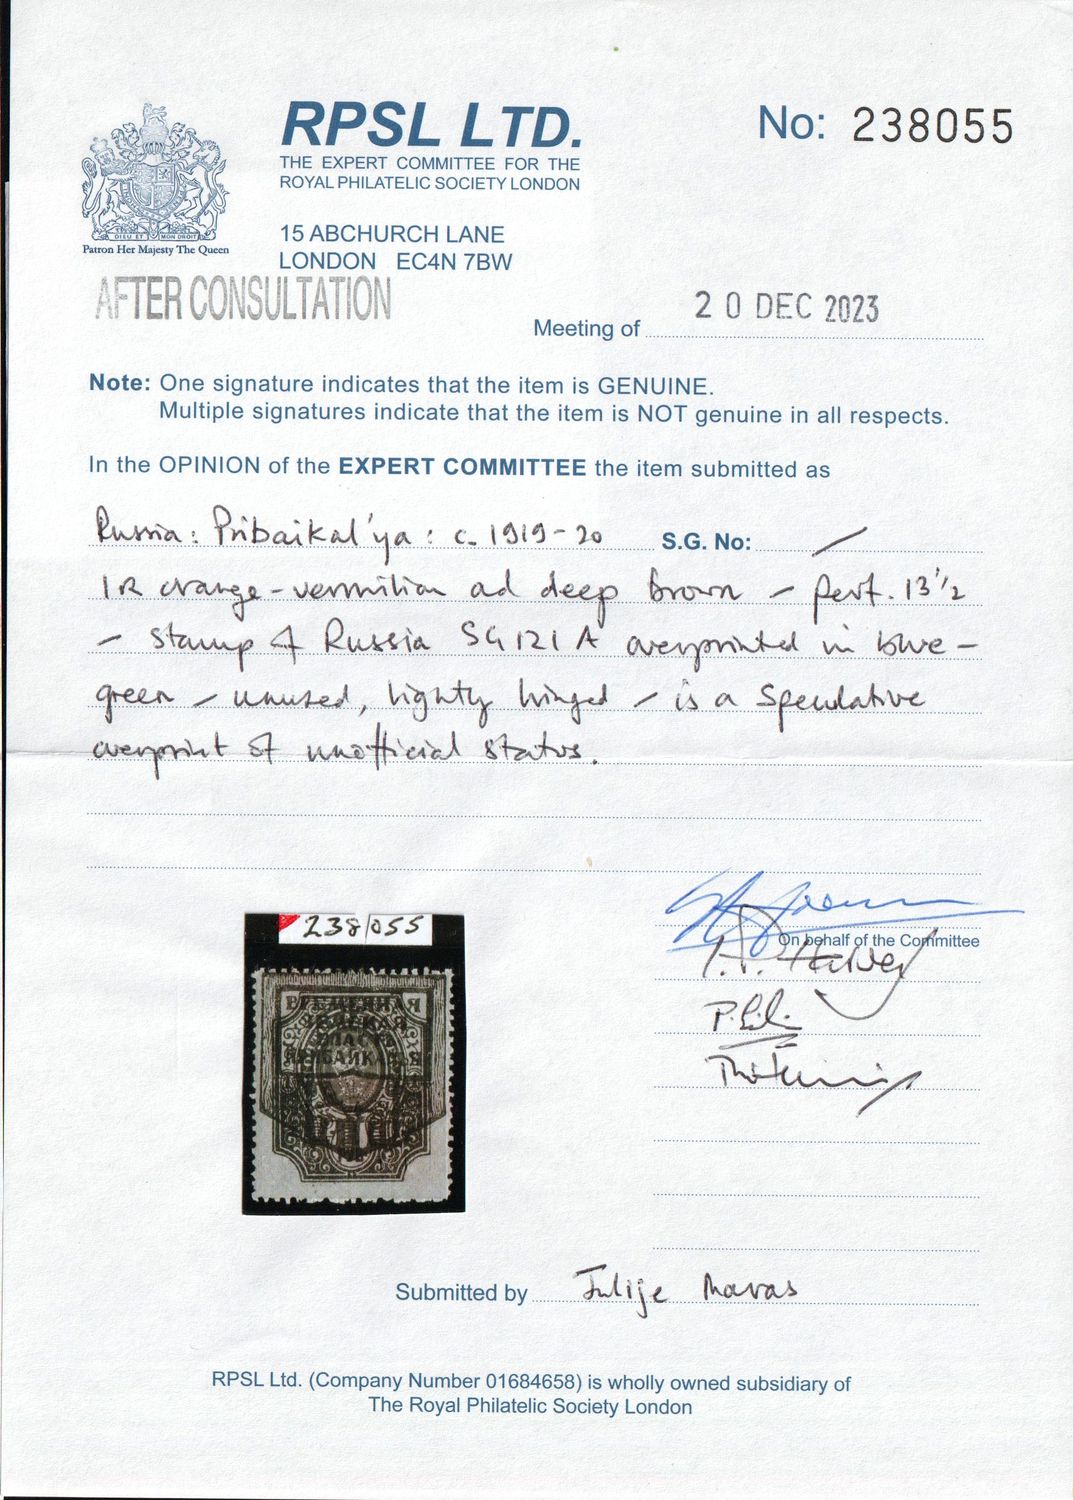 RPSL LTD.
THE EXPERT COMMITTEE FOR THE
ROYAL PHILATELIC SOCIETY LONDON
No: 238055
DIEU ET MON DROIT
Patron Her Majesty The Queen
15 ABCHURCH LANE
LONDON EC4N 7BW
AFTER CONSULTATION
Meeting of 20 DEC 2023
Note: One signature indicates that the item is GENUINE.
Multiple signatures indicate that the item is NOT genuine in all respects.
In the OPINION of the EXPERT COMMITTEE the item submitted as
Russia: Pribaikal'ya: c. 1919-20 S.G. No: /
1R orange-vermilion ad deep brown - perf. 13½
- stamp of Russia SG121A overprinted in blue-
green - unused, lightly hinged - is a speculative
overprint of unofficial status.
On behalf of the Committee
238055
ВРЕМЕННАЯ
ЗЕМСКАЯ
ВЛАСТЬ
Submitted by Julije Maras
RPSL Ltd. (Company Number 01684658) is wholly owned subsidiary of
The Royal Philatelic Society London